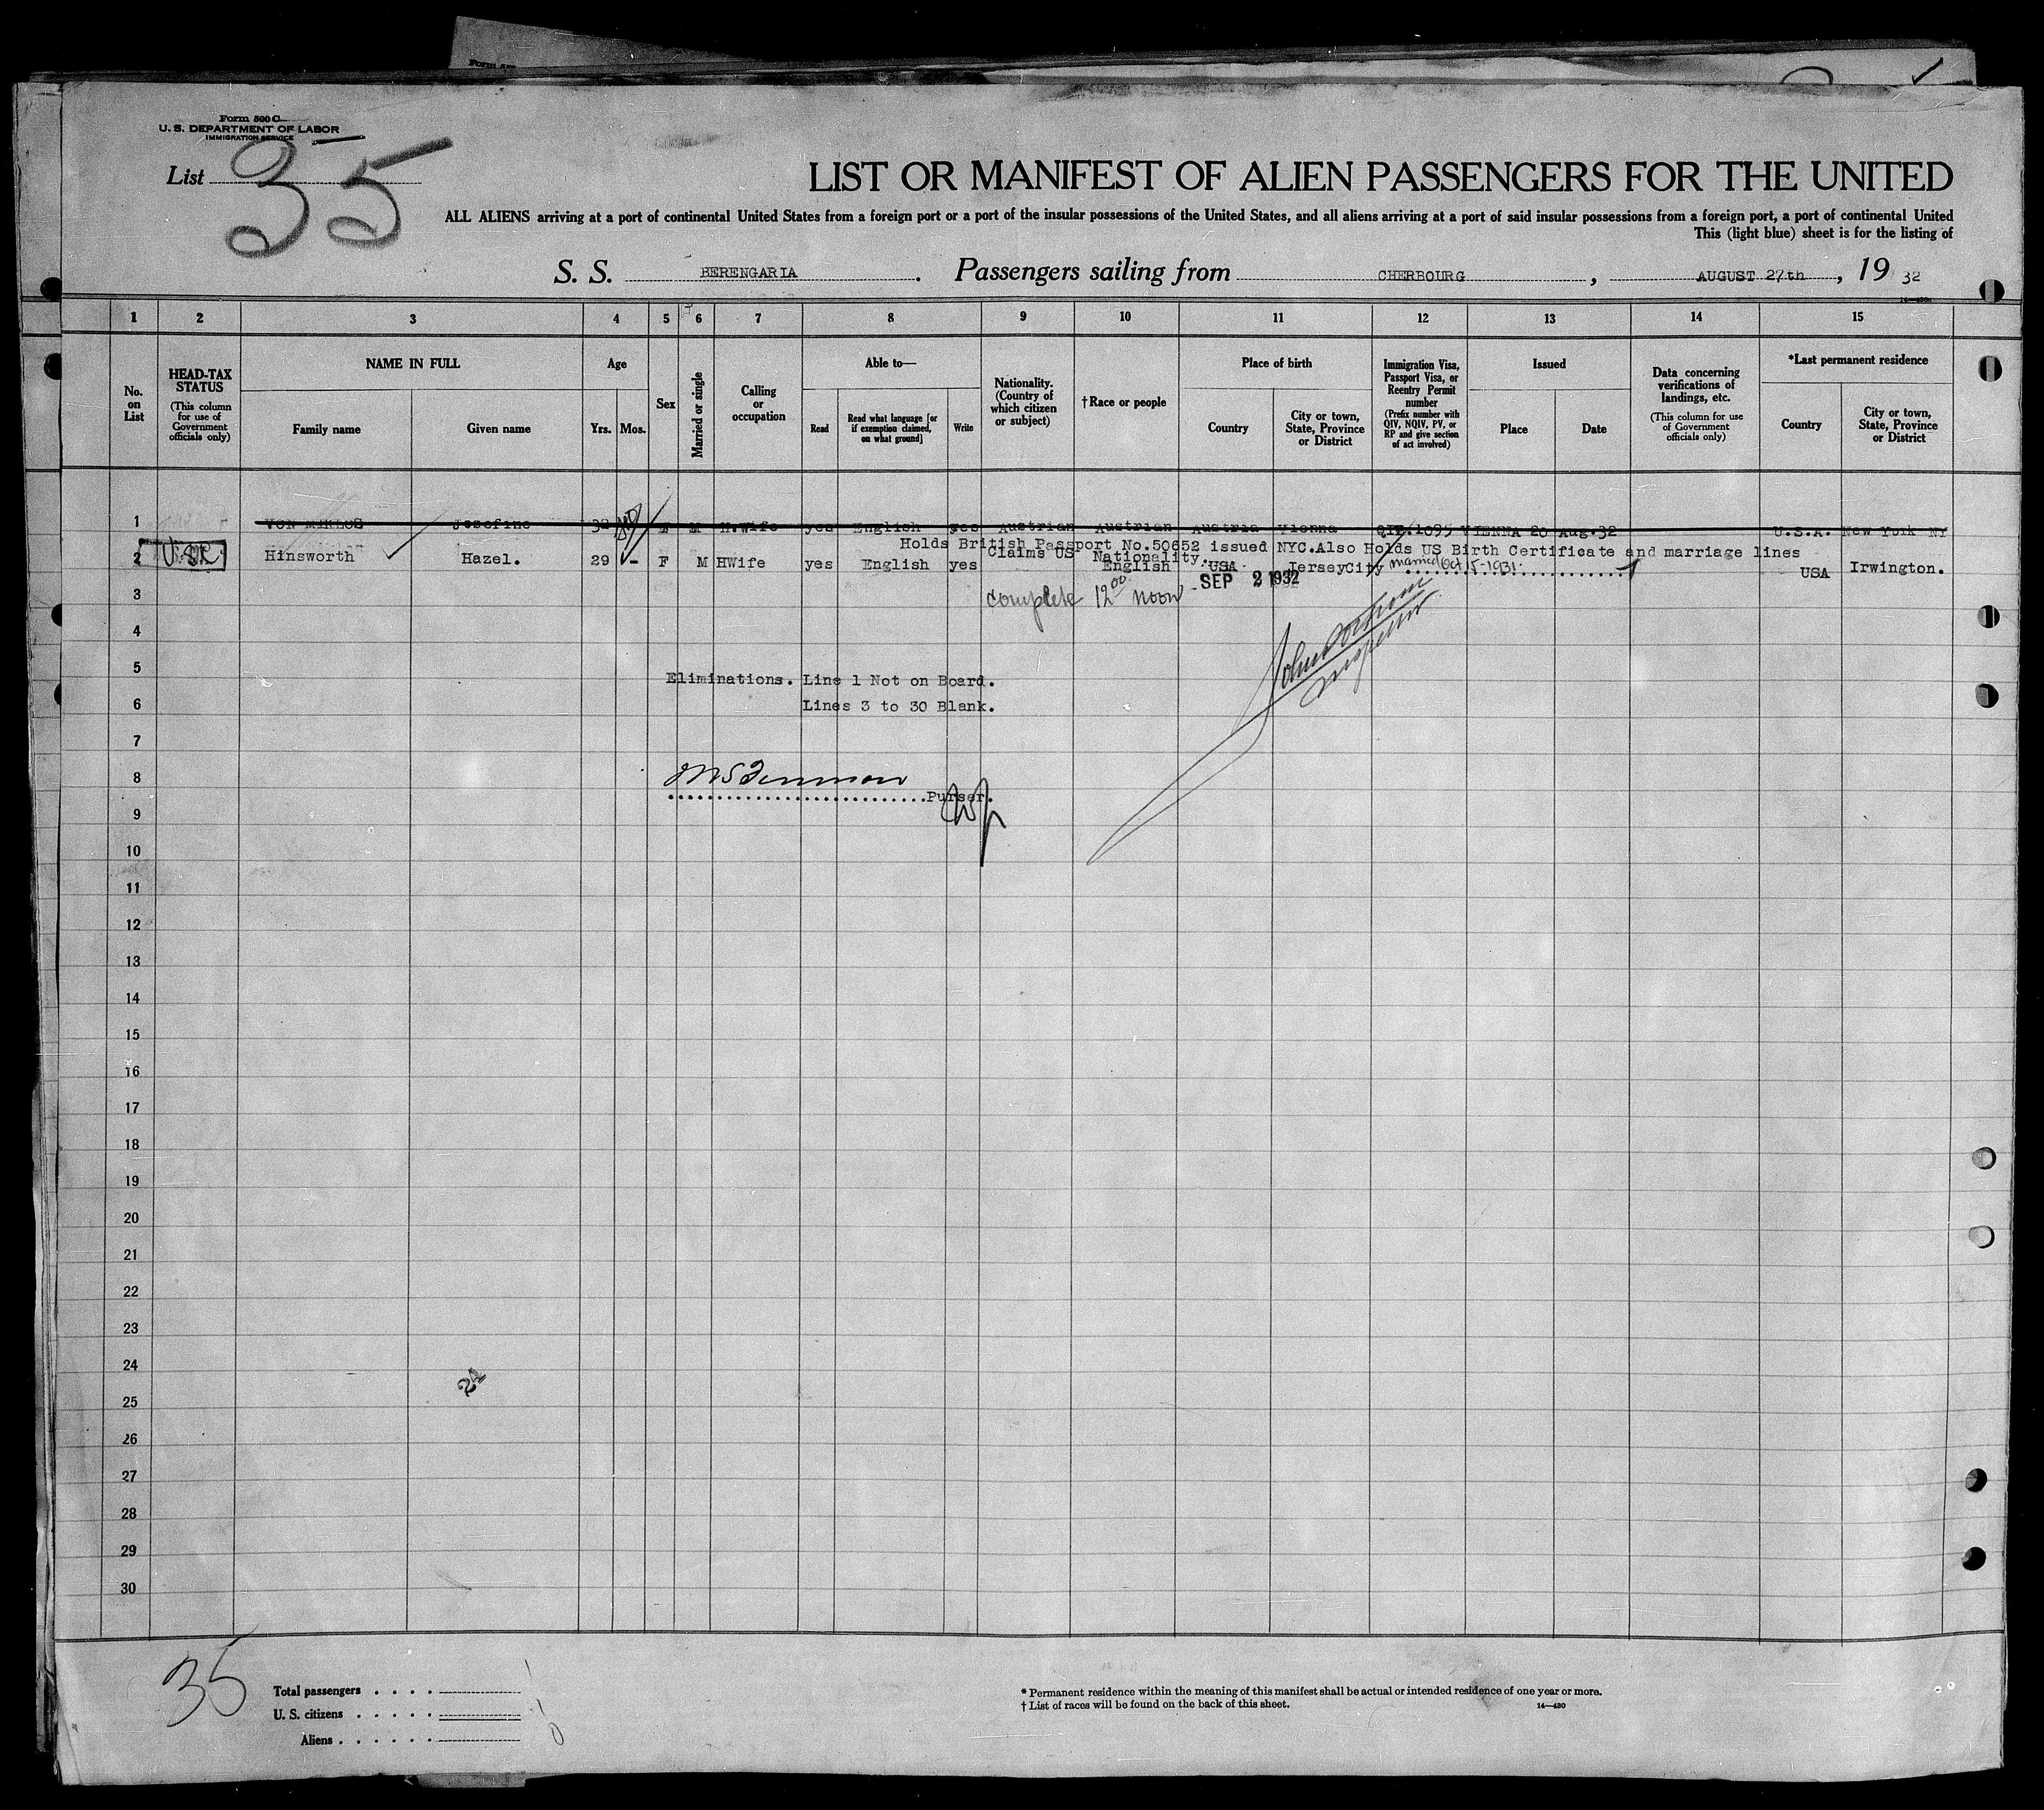 Form 500 C
U. S. DEPARTMENT OF LABOR
IMMIGRATION SERVICE
List 35
LIST OR MANIFEST OF ALIEN PASSENGERS FOR THE UNITED
ALL ALIENS arriving at a port of continental United States from a foreign port or a port of the insular possessions of the United States, and all aliens arriving at a port of said insular possessions from a foreign port, a port of continental United
This (light blue) sheet is for the listing of
S. S. BERENGARIA. Passengers sailing from CHERBOURG, AUGUST 27th, 19 32
1 2 3 4 5 6 7 8 9 10 11 12 13 14 15
No. on List
HEAD-TAX STATUS
(This column for use of Government officials only)
NAME IN FULL
Family name
Given name
Age
Yrs. Mos.
Sex
Married or single
Calling or occupation
Able to—
Read
Read what language [or if exemption claimed, on what ground]
Write
Nationality. (Country of which citizen or subject)
†Race or people
Place of birth
Country
City or town, State, Province or District
Immigration Visa, Passport Visa, or Reentry Permit number
(Prefix number with QIV, NQIV, PV, or RP and give section of act involved)
Issued
Place
Date
Data concerning verifications of landings, etc.
(This column for use of Government officials only)
*Last permanent residence
Country
City or town, State, Province or District
1 VON MIKLOS Josefine 32 F M H.Wife yes English yes Austrian Austrian Austria Vienna 1095 VIENNA 20 Aug.32 U.S.A. New York NY
Holds British Passport No.50652 issued NYC.Also Holds US Birth Certificate and marriage lines
2 Hinsworth Hazel. 29 - F M HWife yes English yes Claims US Nationality. English USA JerseyCity married Oct 5-1931 USA Irwington.
SEP 2 1932
3 complete 12 00 noon
4
5
Eliminations. Line 1 Not on Board.
6
Lines 3 to 30 Blank.
7
8
Purser.
9
10
11
12
13
14
15
16
17
18
19
20
21
22
23
24
24
25
26
27
28
29
30
35
Total passengers 1
U. S. citizens 1
Aliens 0
* Permanent residence within the meaning of this manifest shall be actual or intended residence of one year or more.
† List of races will be found on the back of this sheet.
14—430